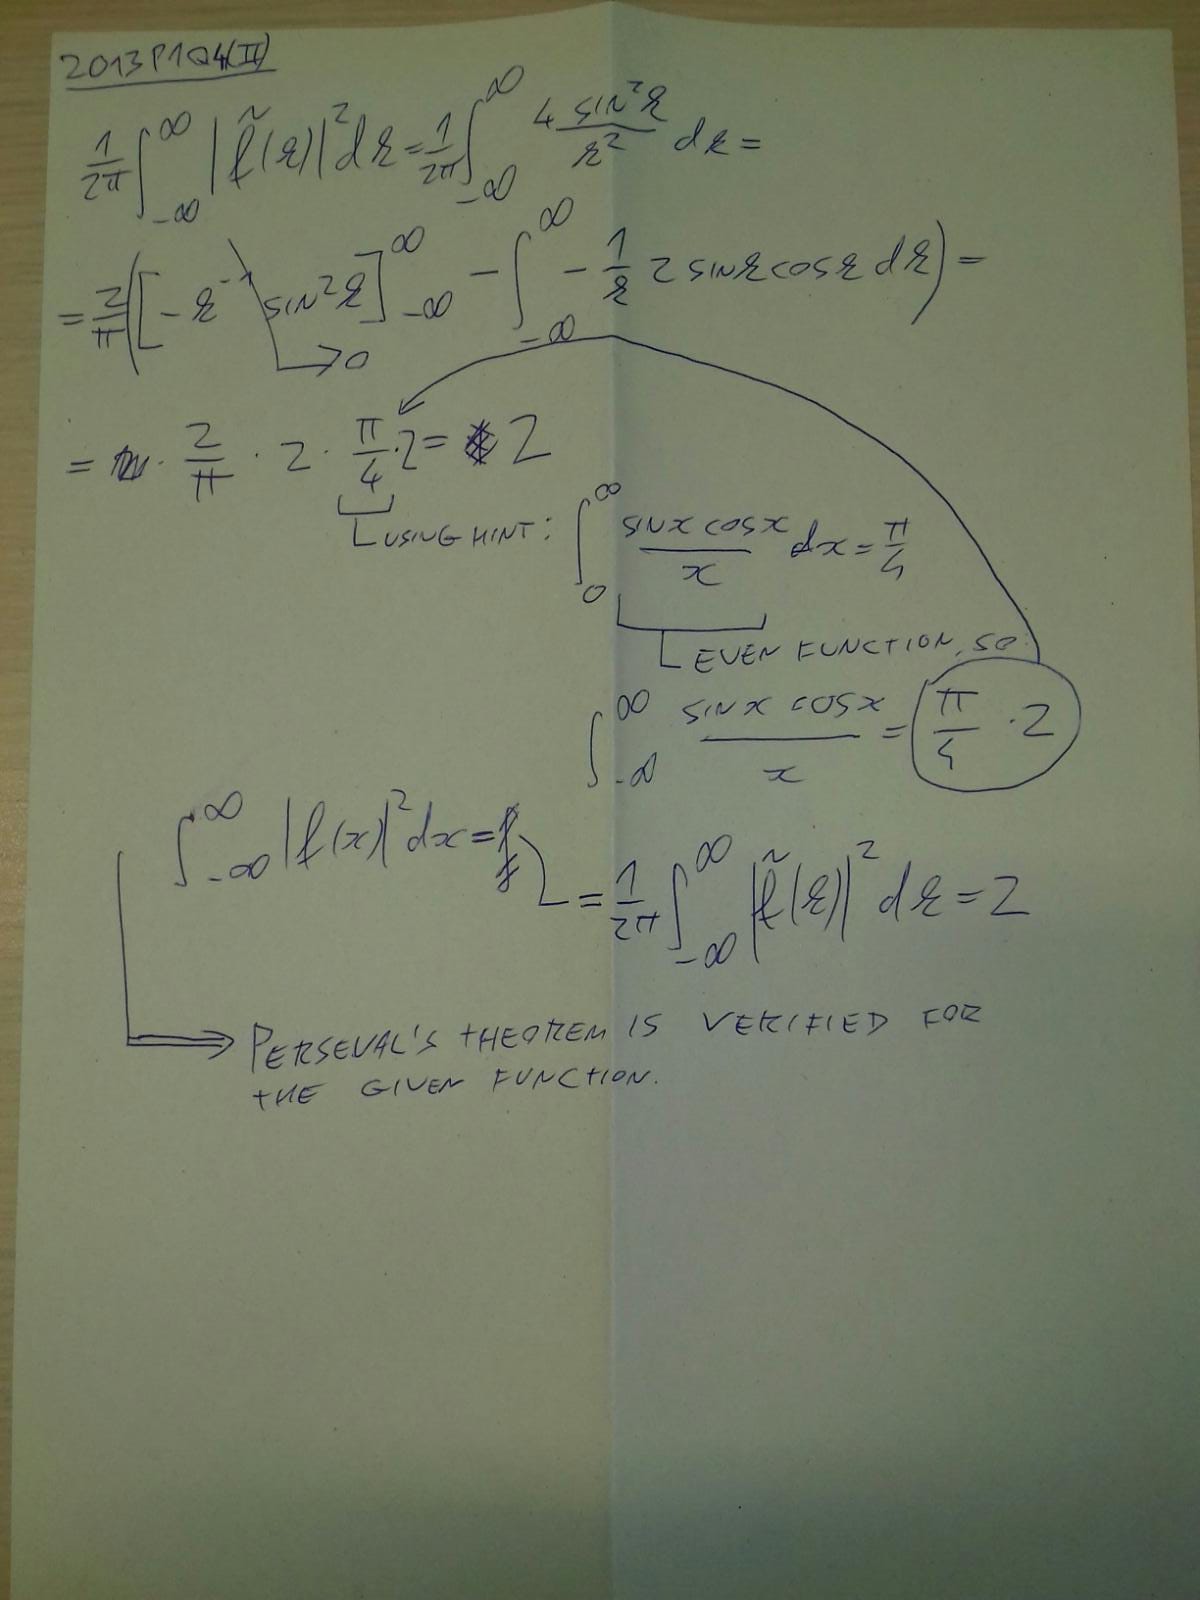 2013P1Q4(II)
1/2π ∫_{-∞}^{∞} |f̃(k)|² dk = 1/2π ∫_{-∞}^{∞} 4 sin²k / k² dk =
= 2/π ([-k⁻¹ sin²k]_{-∞}^{∞} - ∫_{-∞}^{∞} - 1/k 2 sin k cos k dk) =
→ 0
= · 2/π · 2 · π/4 · 2 = 2
USING HINT: ∫_0^∞ sin x cos x / x dx = π/4
EVEN FUNCTION, SO
∫_{-∞}^{∞} sin x cos x / x = π/4 · 2
∫_{-∞}^{∞} |f(x)|² dx =
= 1/2π ∫_{-∞}^{∞} |f̃(k)|² dk = 2
PERSEVAL'S THEOREM IS VERIFIED FOR
THE GIVEN FUNCTION.